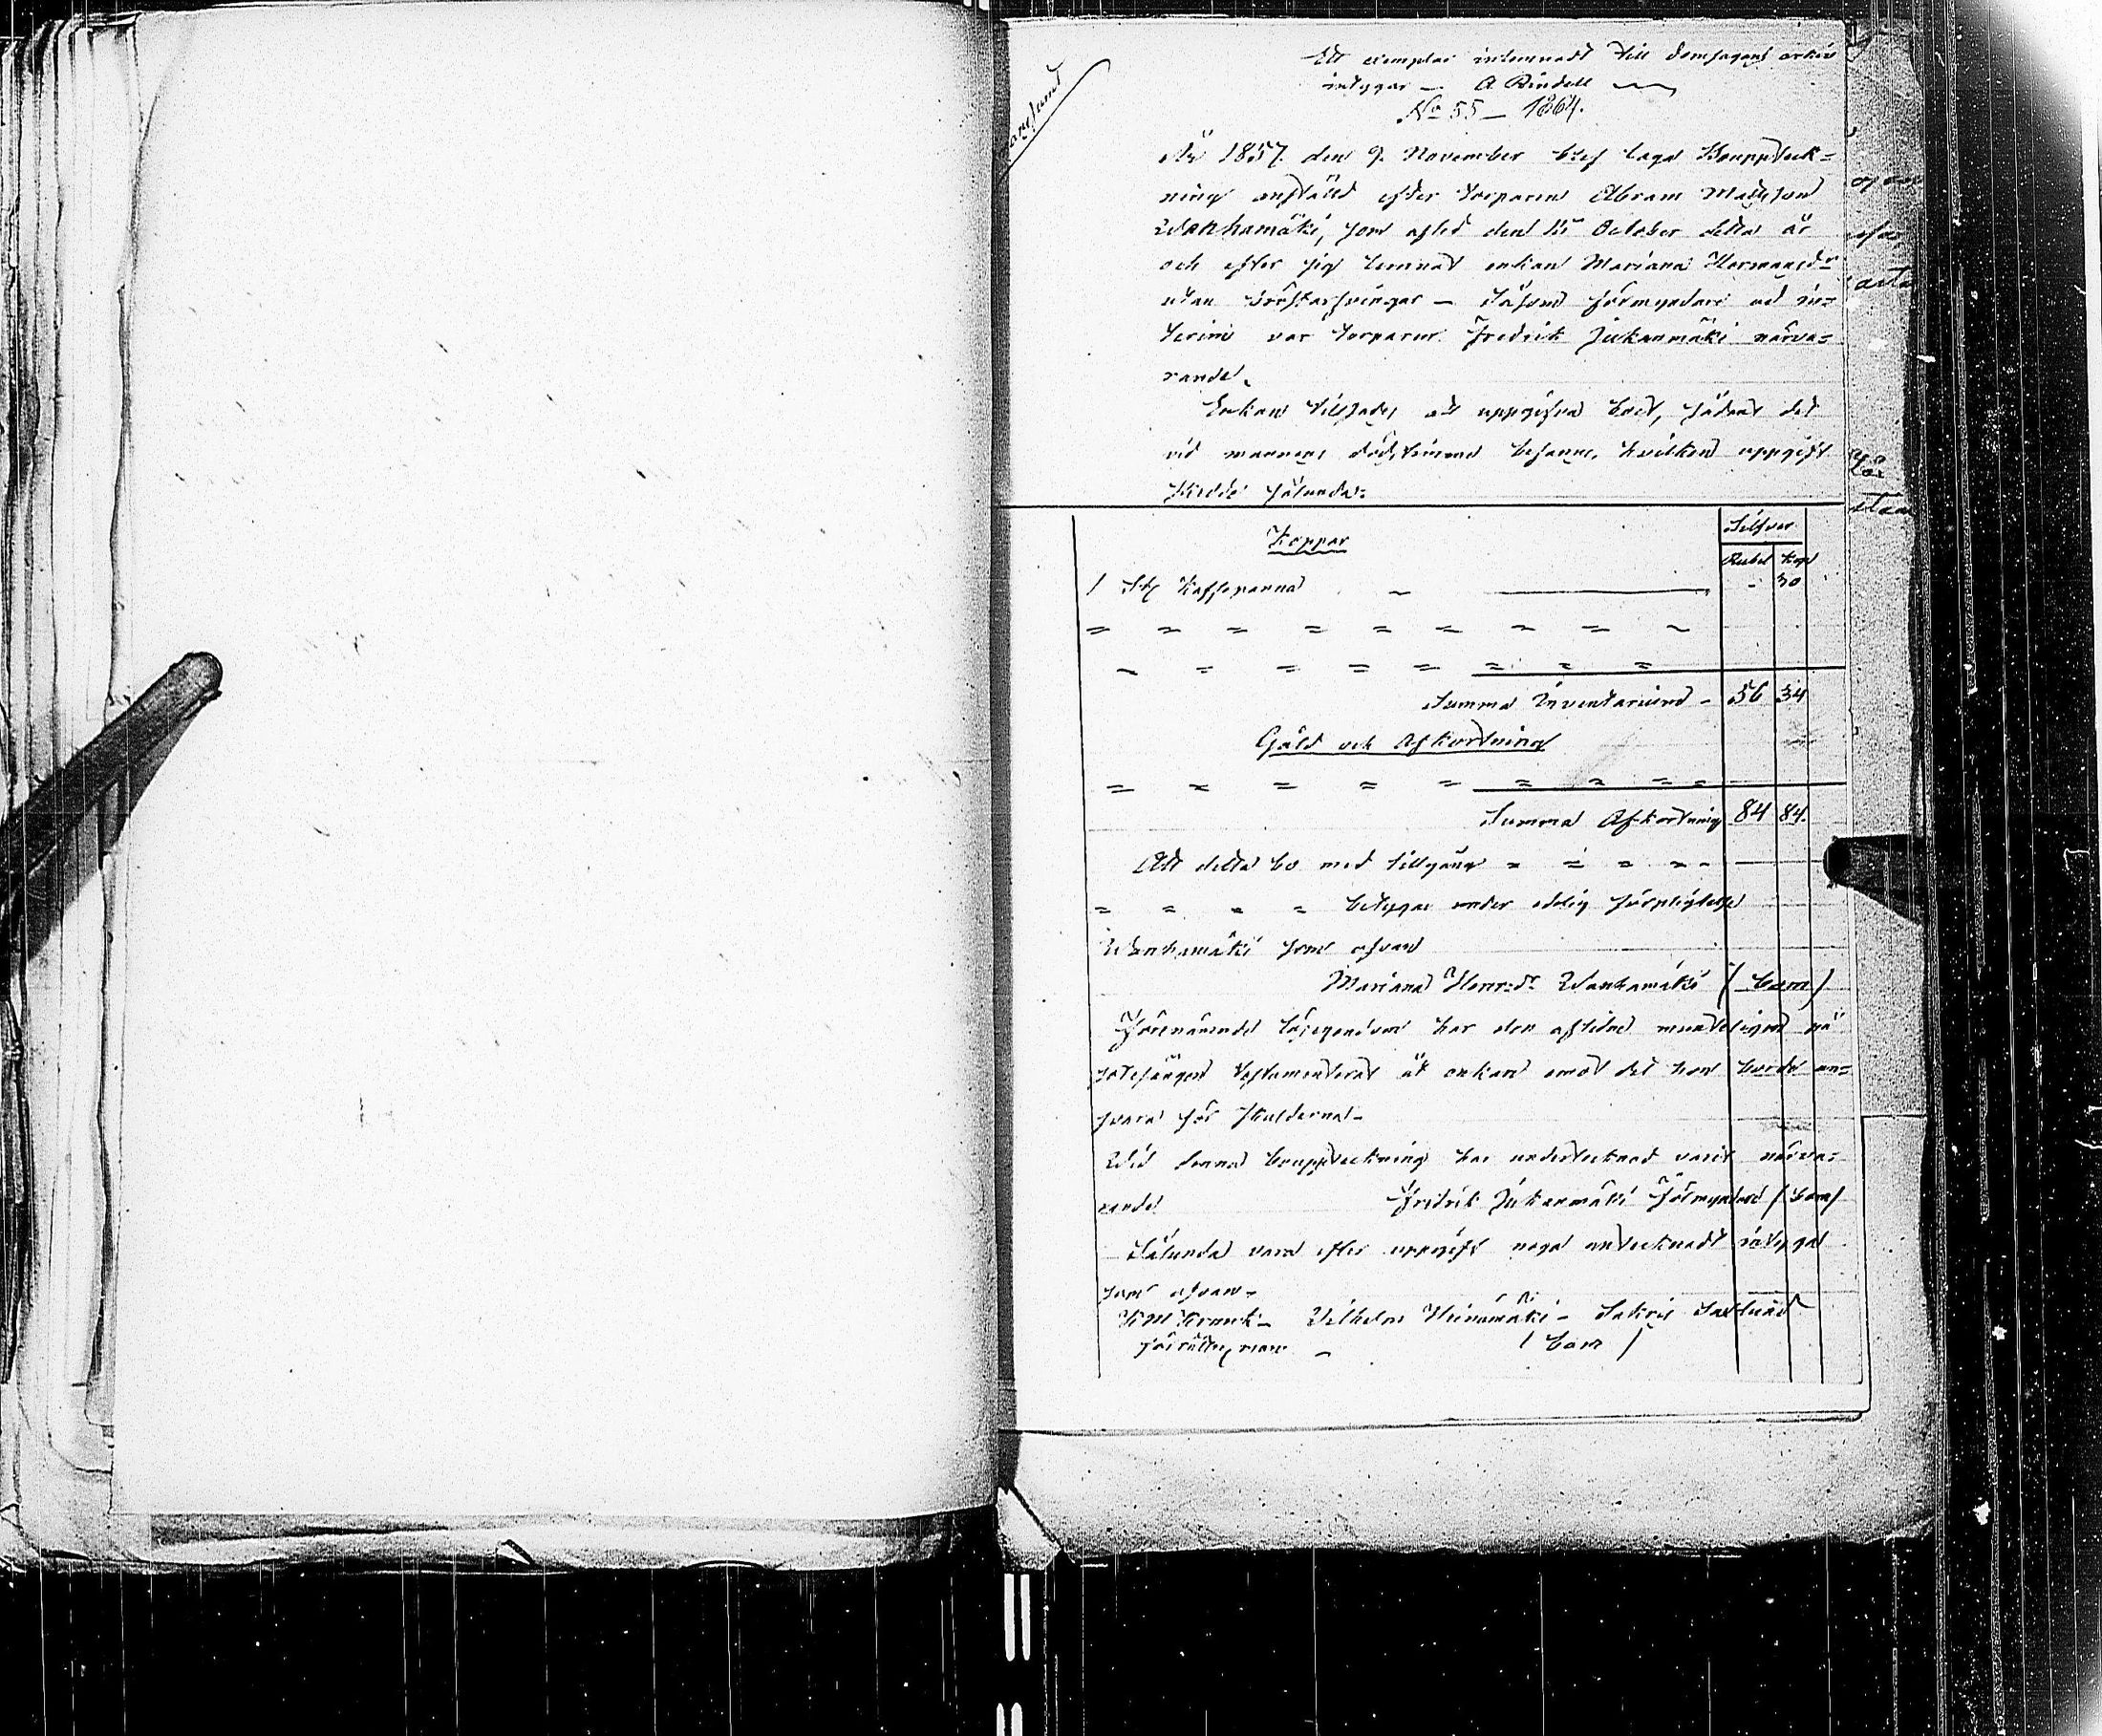 Ett exemplar inlemnadt till domsagans arkiv
intygar — A Bindell
No 55 — 1864.
År 1857. den 9. November blef laga Bouppteck=
ning anställd efter torparen Abram Mattsson
Wanhamäki, som afled den 15 October detta år
och efter sig lemnat enkan Mariana Hermansdr
utan bröstarfvingar — Såsom förmyndare ad in=
terim var torparen Fredrik Jukanmäki närva=
rande.
Enkan tillsades att uppgifva boet, sådant det
vid mannens dödstimma befanns, hvilken uppgift
skedde sålunda:
Silfver
Koppar
Rubel Kop
1 St Kaffepanna — - 30
= = = = = = = = =
= = = = = = = =
Summa Inventarium - 56 34
Gäld och Afkortning
= = = = = = = = =
Summa Afkortning 84 84.
Att detta bo med tillgång = = = = -
= = = = betygar under edelig förpligtelse
Wanhamäki som ofvan
Mariana Hermsdr Wanhamäki (bom)
Förenämnde lösegendom har den aflidne munteligen på
sotesängen testamenterat åt enkan emot det hon borde an=
svara för skulderna -
Wid denna bouppteckning har undertecknad varit närva=
rande Fridrik Jukanmäki Förmyndare (bom)
Sålunda vara efter uppgift noga antecknadt intygar
som ofvan -
KM Kronck - Vilhelm Heinämäki - Sakris Saxlund
förrättningsman - (bom)